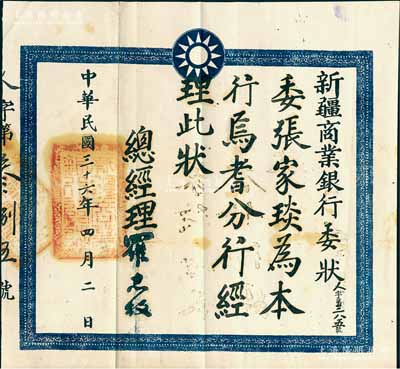 新疆商業銀行委狀
委張家琰為本
行焉耆分行經
理此狀
總經理羅
中華民國三十六年四月二日
人字第
號